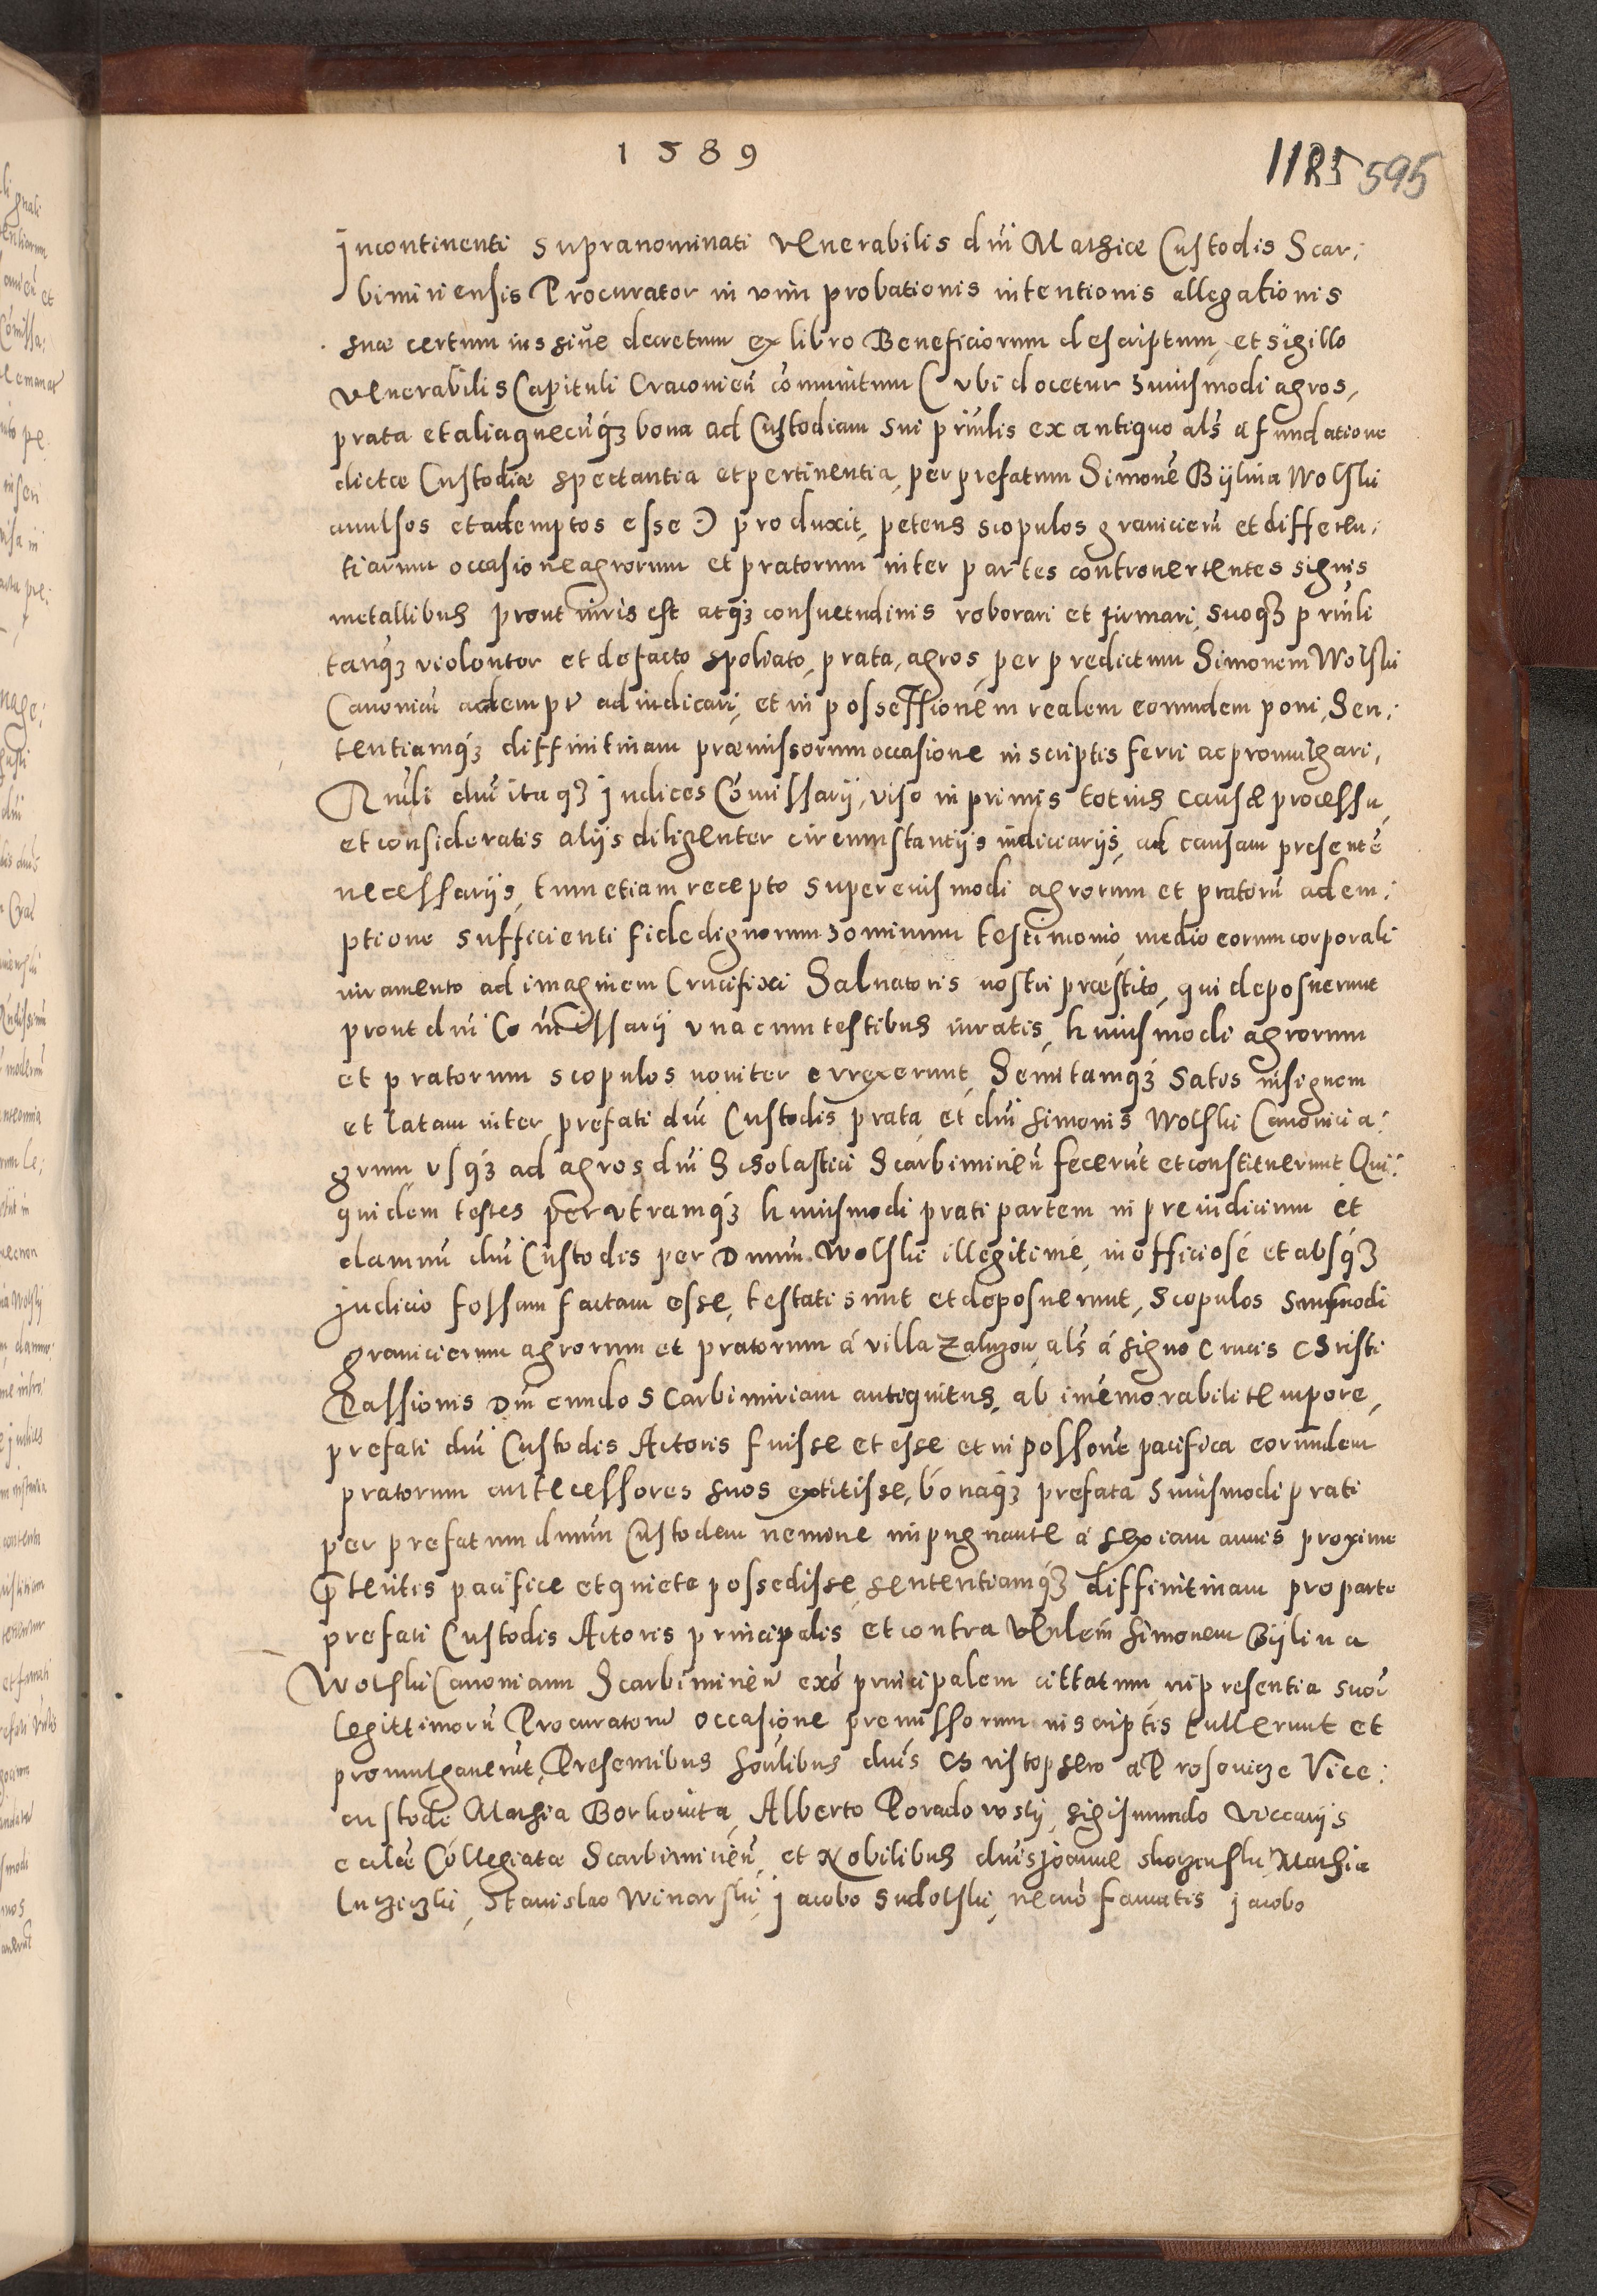 1589
1185 595
Incontinenti supranominati Venerabilis dni Mathiæ Custodis Scar:
bimiriensis Procurator in vim probationis intentionis allegationis
suæ certum ius sive decretum ex libro Beneficiorum descriptum, et sigillo
Venerabilis Capituli Cracovien̄ com̄unitum (ubi docetur huiusmodi agros,
prata et aliaquecūq3 bona ad Custodiam sui privilis ex antiquo als a fundatione
dictæ Custodiæ spectantia et pertinentia, per prefatum Simonē Bijlina Wolski
avulsos et ademptos esse) produxit, petens scopulos granicierū et differen:
tiarum occasione agrorum et pratorum inter partes controvertentes signis
metallibus prout iuris est atq3 consuetudinis roborari et firmari, suoq3 privili
tanq3 violenter et defacto spoliato, prata, agros, per predictum Simonem Wolski
Canonicū adempt adiudicari, et in possessionem realem eorundem poni, Sen:
tentiamq3 diffinitivam præmissorum occasione in scriptis ferri ac promulgari,
Rndi dni itaq3 Iudices Com̄issarij, viso in primis totius causæ processu,
et consideratis alijs diligenter circumstantijs iudiciarijs, ad causam presentē
necessarijs, tum etiam recepto super eiusmodi agrorum et pratorū adem:
ptione sufficienti fidedignorum hominum testimonio, medio eorum corporali
iuramento ad imaginem Crucifixi Salvatoris nostri præstito, qui deposuerunt
prout dni Com̄issarij una cum testibus iuratis, huiusmodi agrorum
et pratorum scopulos noviter errexerunt, Semitamq3 satos insignem
et latam inter prefati dni Custodis prata et dni Simonis Wolski Canonici a:
grum usq3 ad agros dni Scholastici Scarbimirien̄ fecerūt et constituerunt Qui:
quidem testes per utramq3 huiusmodi prati partem in preiudicium et
damnū dni Custodis per Dnum Wolski illegitimé, inofficiosé et absq3
iudicio fossam factam esse, testati sunt et deposuerunt, Scopulos huiusmodi
granicierum agrorum et pratorum á villa Zaluzow als á signo Crucis Christi
Passionis Dni eundo Scarbimiriam antiquitus, ab im̄emorabili tempore,
prefati dni Custodis Actoris fuisse et esse et in possone pacifica eorundem
pratorum antecessores suos extitisse, bonaq3 prefata huiusmodi prati
per prefatum dnum Custodem nemine impugnante á sex iam annis proxime
ptentis pacifice et quiete possedisse, sententiamq3 diffinitivam pro parte
prefati Custodis Actoris principalis et contra Venlem Simonem Bijlina
Wolski Canonicum Scarbimirien̄ exo principalem cittatum in presentia suor
legittimorū Procuratorū occasione premissorum in scriptis tullerunt et
promulgaverūt, Presentibus honlibus dnis Christophero a Prosowicze Vice:
custode Mathia Borkovita, Alberto Poradowsky, Sigismundo Viccarijs
ecclæ Collegiatæ Scarbimirien̄, et Nobilibus dnis Ioanne Skotzewski Mathia
Stanislao Winarski, Iacobo Sudolski, necno famatis Iacobo